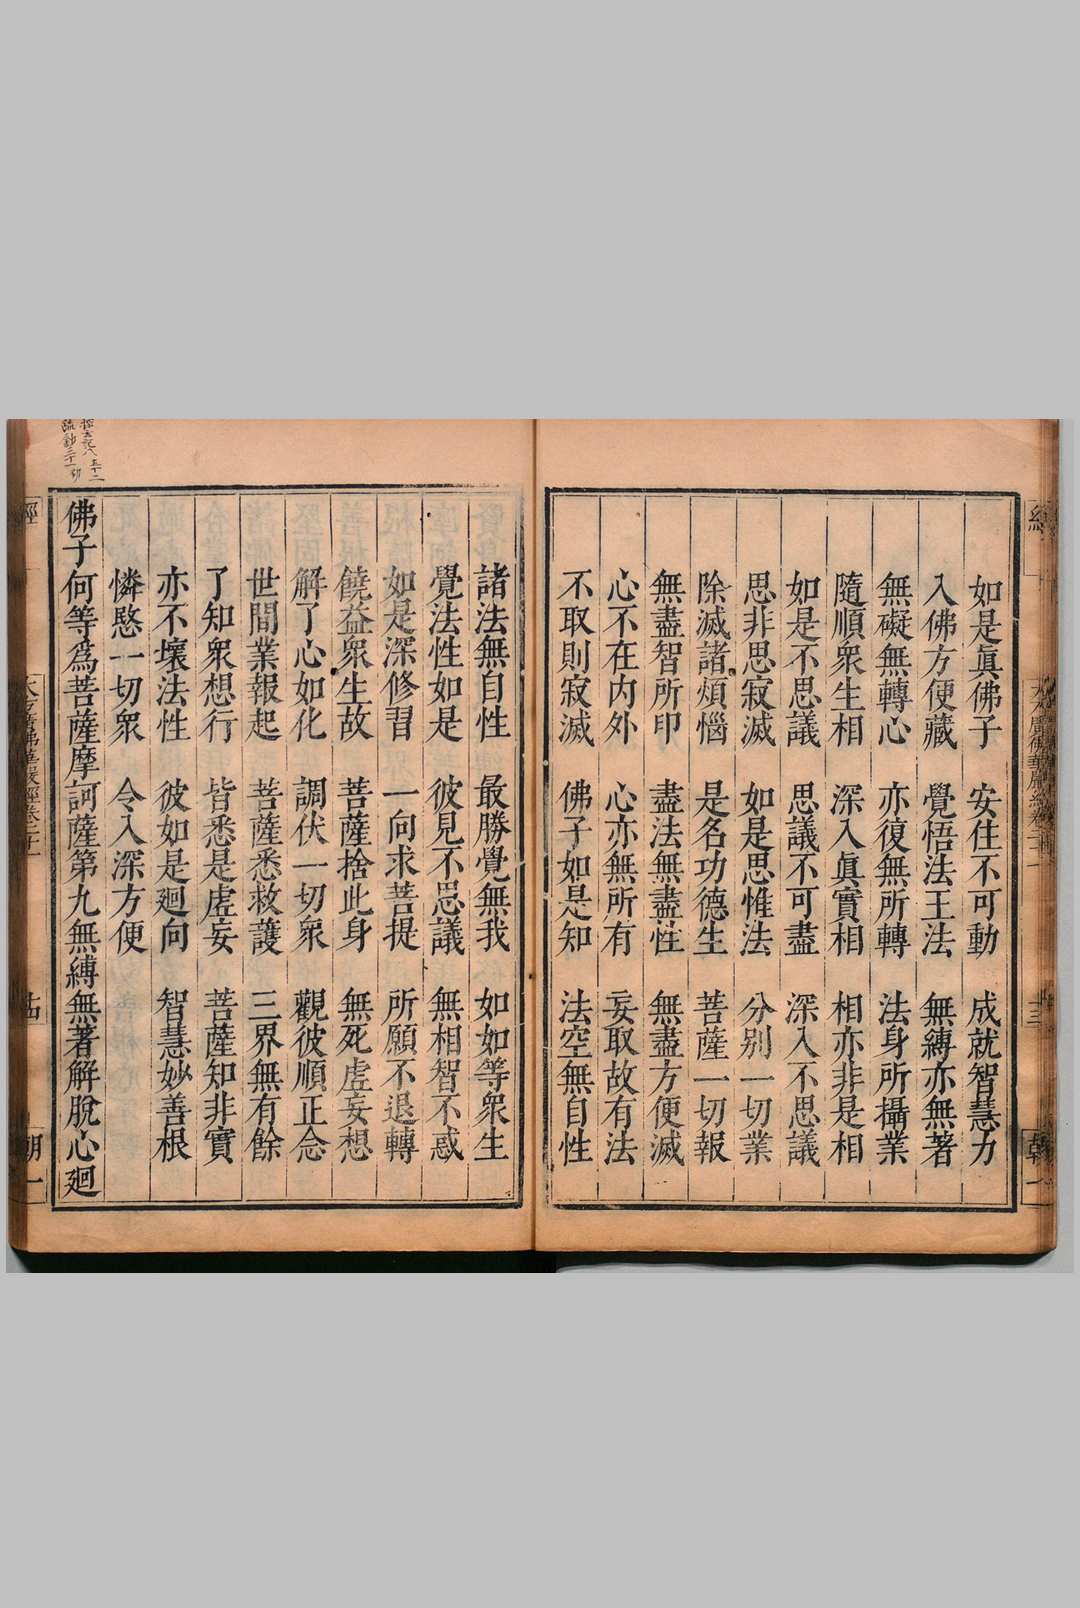 如是眞佛子　安住不可動　成就智慧力
入佛方便藏　覺悟法王法　無縛亦無著
無礙無轉心　亦復無所轉　法身所攝業
隨順衆生相　深入眞實相　相亦非是相
如是不思議　思議不可盡　深入不思議
思非思寂滅　如是思惟法　分别一切業
除滅諸煩惱　是名功德生　菩薩一切報
無盡智所印　盡法無盡性　無盡方便滅
心不在内外　心亦無所有　妄取故有法
不取則寂滅　佛子如是知　法空無自性
諸法無自性　最勝覺無我　如如等衆生
覺法性如是　彼見不思議　無相智不惑
如是深修習　一向求菩提　所願不退轉
饒益衆生故　菩薩捨此身　無死虚妄想
解了心如化　調伏一切衆　觀彼順正念
世間業報起　菩薩悉救護　三界無有餘
了知衆想行　皆悉是虚妄　菩薩知非實
亦不壞法性　彼如是廻向　智慧妙善根
憐愍一切衆　令入深方便
佛子何等爲菩薩摩訶薩第九無縛無著解脫心廻
大方廣佛華嚴經卷二十一